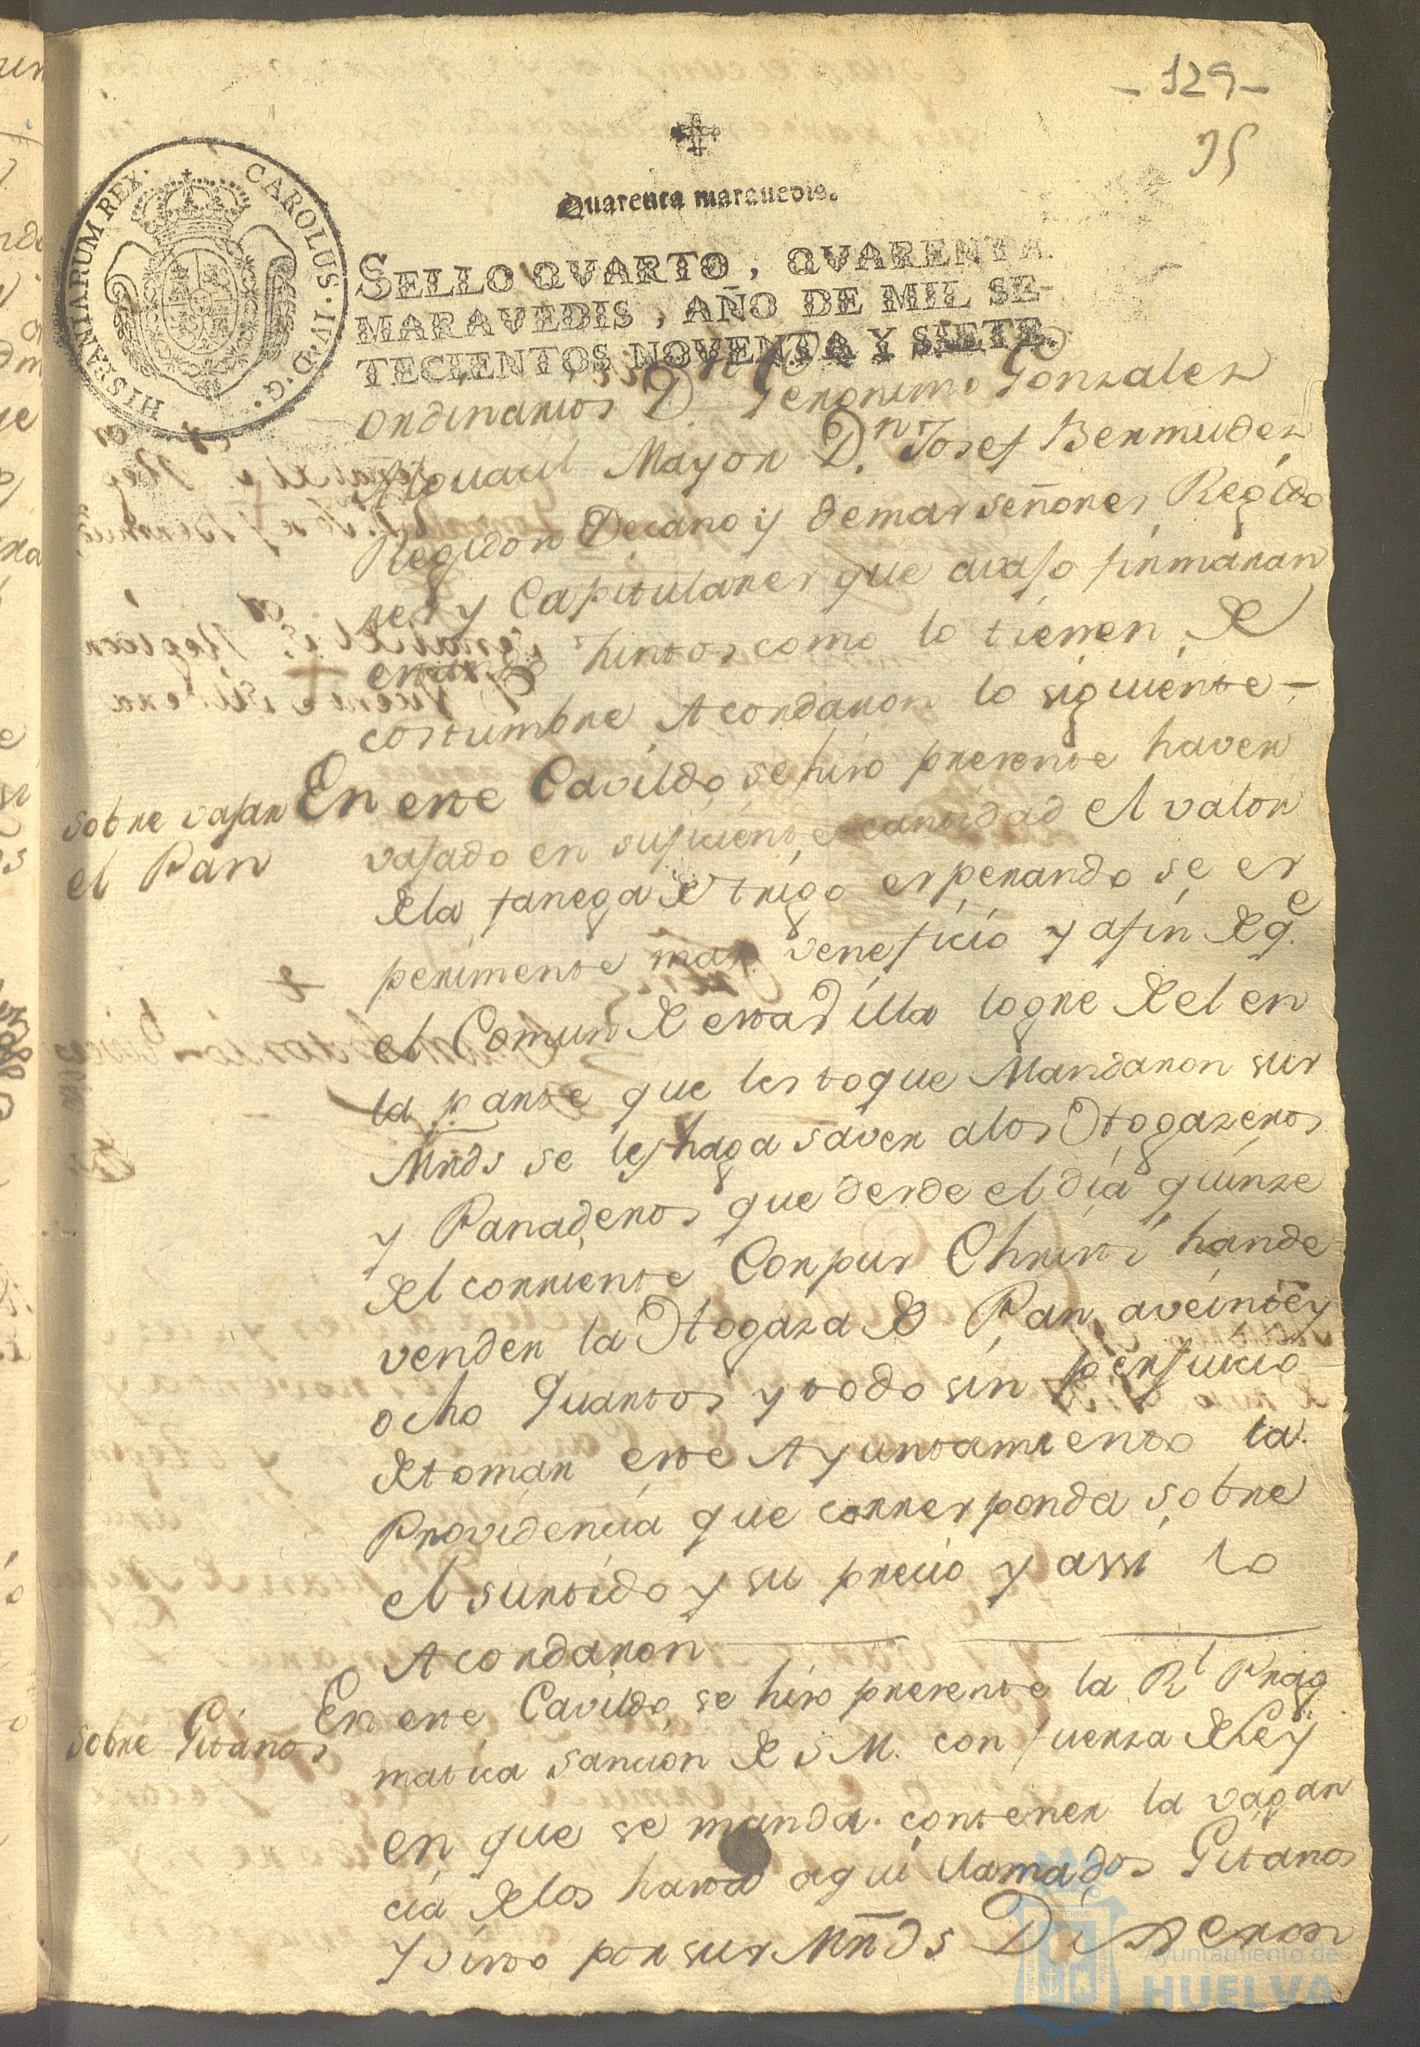 - 129 -
95
Quarenta marauedis.
SELLO QVARTO, QVARENTA
MARAVEDIS, AÑO DE MIL SE-
TECIENTOS NOVENTA Y SIETE.
CAROLUS · IV · D · G · HISPANIARUM REX ·
ordinarios Dn Geronimo Gonzalez
Alguacil Mayor Dn. Josef Bermudez
Regidor Decano y demas señores Regido
res y Capitulares que avajo firmaran
estando juntos como lo tienen de
costumbre Acordaron lo siguiente -
sobre vajar
el Pan
En este Cavildo se hizo presente haver
vajado en suficiente cantidad el valor
de la fanega de trigo esperando se es
perimente mas veneficio y afin de qe
el Comun de esta Villa logre de el en
la parte que les toque Mandaron sus
Mrds se les haga saver a los Hogazeros
y Panaderos que desde el dia quinze
del corriente Corpus Christi hande
vender la Hogaza de Pan a veinte y
ocho quartos y todo sin perjuicio
de tomar este Ayuntamiento la
Providencia que corresponda sobre
el surtido y su precio y assi lo
Acordaron
sobre Gitanos
En este Cavildo se hizo presente la Rl Prag
matica sancion de S M. con fuerza de Ley
en que se manda contener la vagan
cia de los hasta aqui llamados Gitanos
y visto por sus Mrds Dixeron
Ayuntamiento de
HUELVA